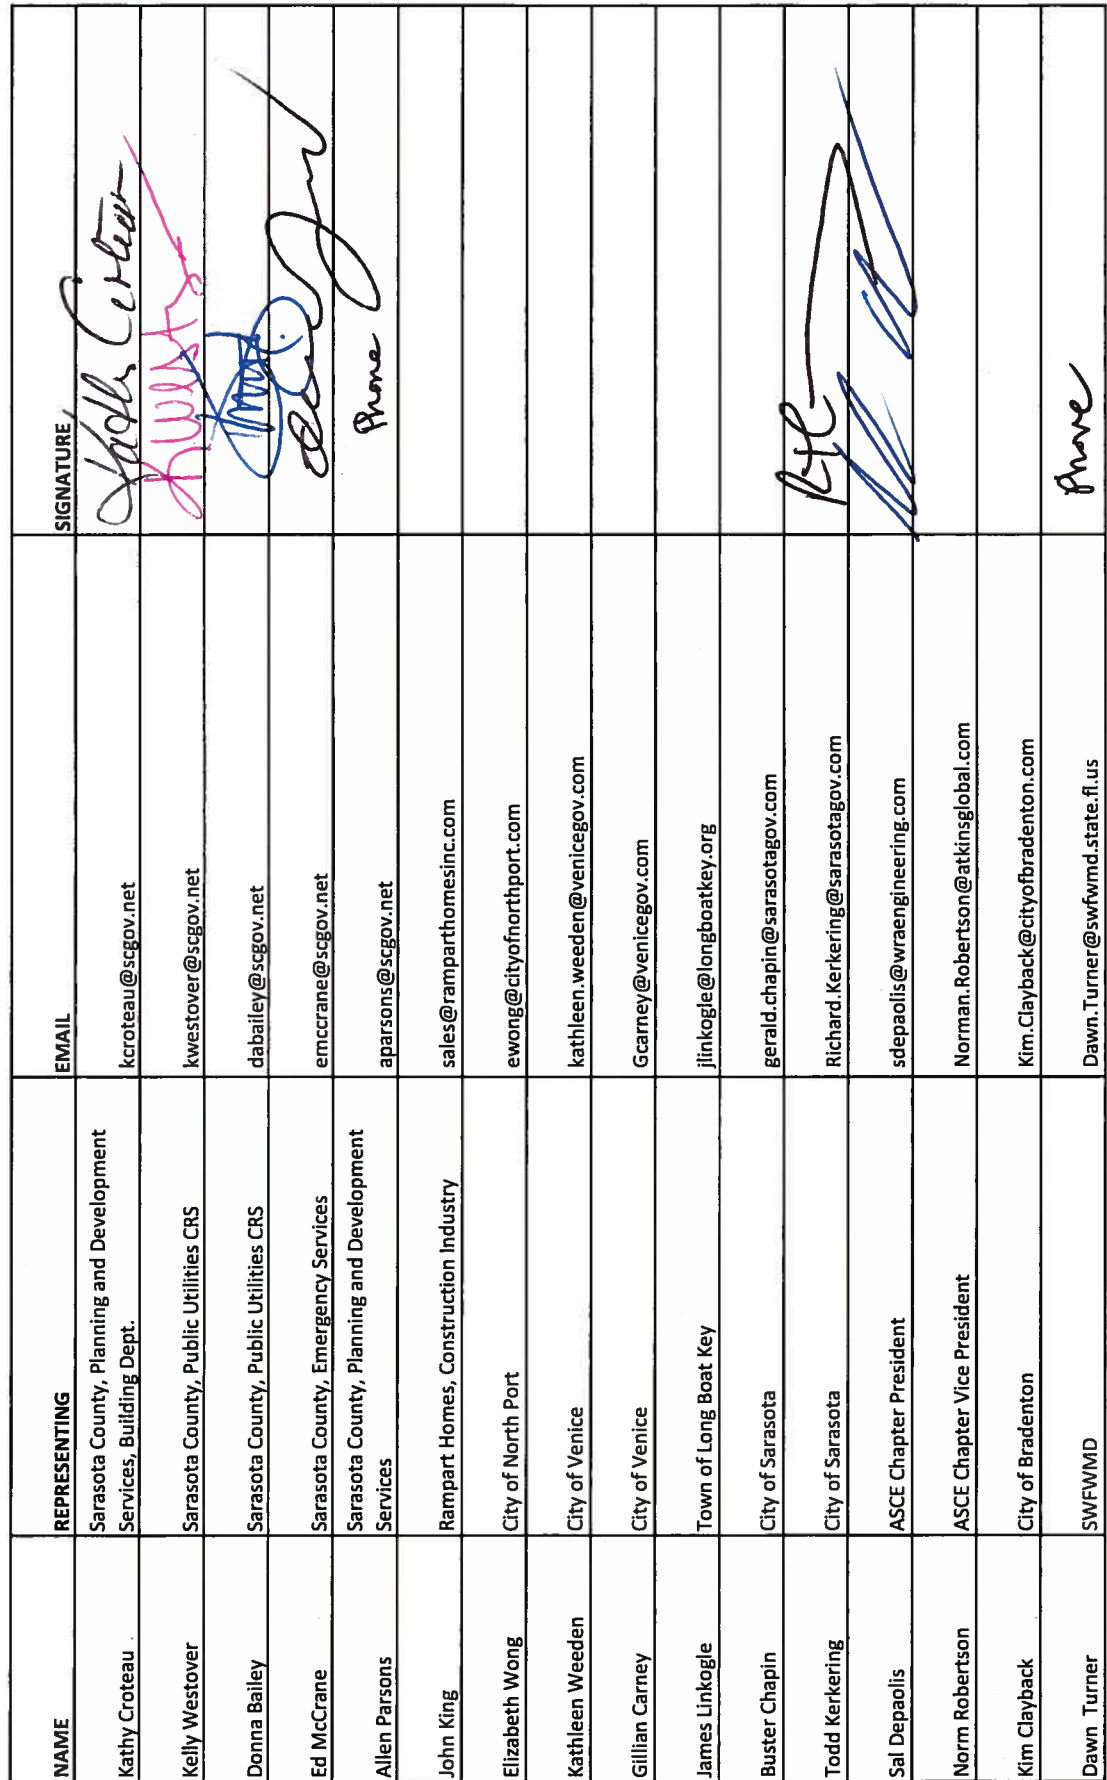 NAME REPRESENTING EMAIL SIGNATURE
Kathy Croteau Sarasota County, Planning and Development kcroteau@scgov.net Kathy Croteau
Services, Building Dept.
Kelly Westover Sarasota County, Public Utilities CRS kwestover@scgov.net
Donna Bailey Sarasota County, Public Utilities CRS dabailey@scgov.net
Ed McCrane Sarasota County, Emergency Services emccrane@scgov.net
Allen Parsons Sarasota County, Planning and Development aparsons@scgov.net Phone
Services
John King Rampart Homes, Construction Industry sales@ramparthomesinc.com
Elizabeth Wong City of North Port ewong@cityofnorthport.com
Kathleen Weeden City of Venice kathleen.weeden@venicegov.com
Gillian Carney City of Venice Gcarney@venicegov.com
James Linkogle Town of Long Boat Key jlinkogle@longboatkey.org
Buster Chapin City of Sarasota gerald.chapin@sarasotagov.com
Todd Kerkering City of Sarasota Richard.Kerkering@sarasotagov.com
Sal Depaolis ASCE Chapter President sdepaolis@wraengineering.com
Norm Robertson ASCE Chapter Vice President Norman.Robertson@atkinsglobal.com
Kim Clayback City of Bradenton Kim.Clayback@cityofbradenton.com
Dawn Turner SWFWMD Dawn.Turner@swfwmd.state.fl.us Phone